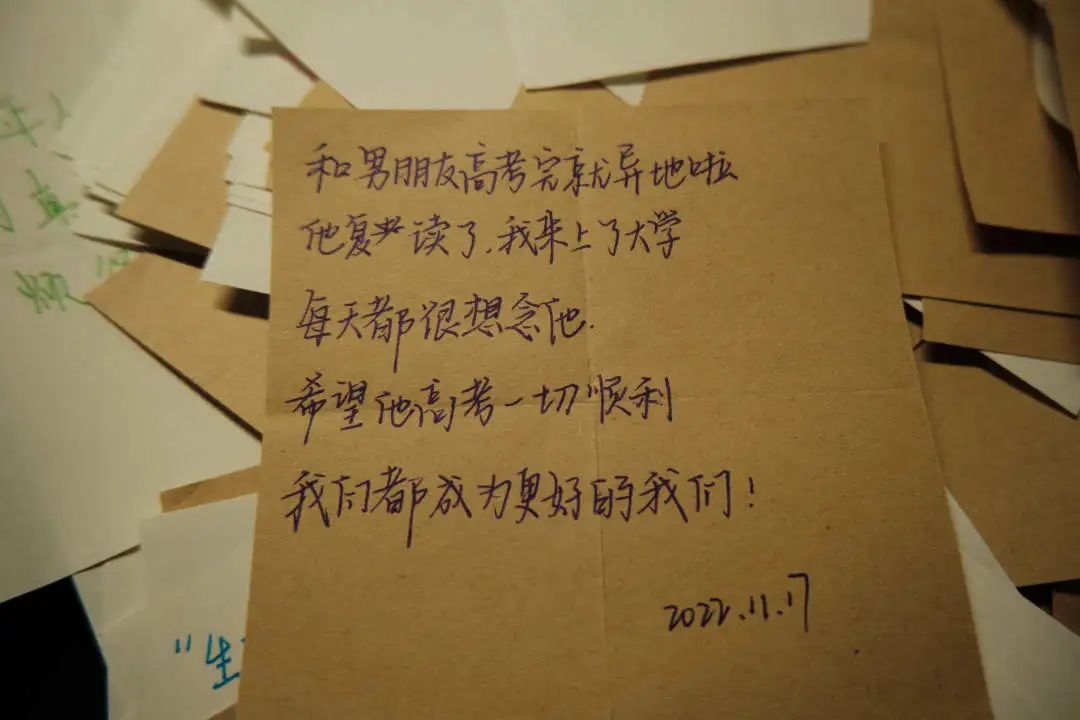 和男朋友高考完就异地啦
他复读了,我来上了大学
每天都很想念他.
希望他高考一切顺利
我们都成为更好的我们!
2022.11.17
"生